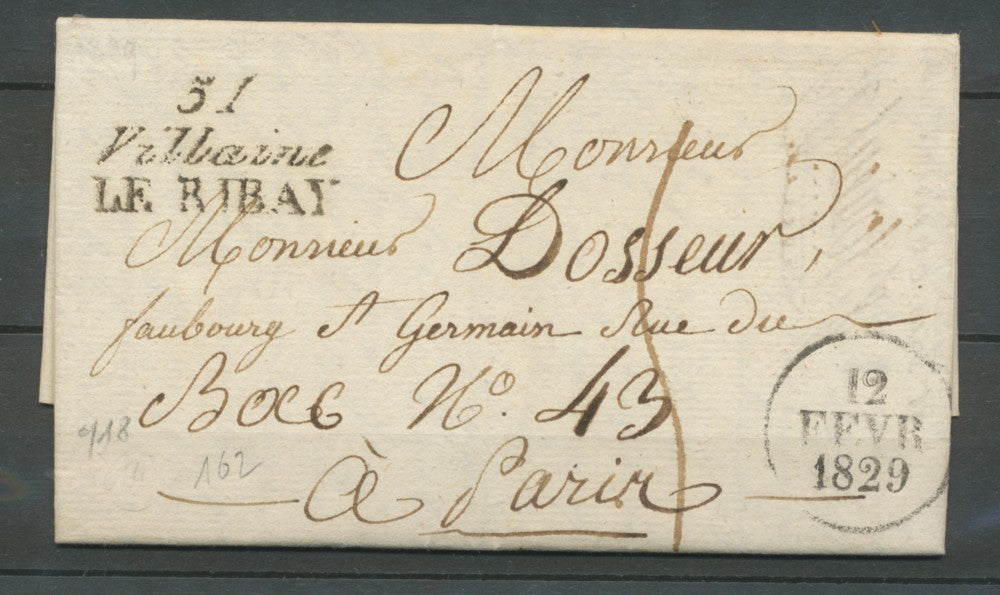 51
Villaine
LE RIBAY
Monsieur
Monsieur Dosseur,
faubourg St Germain Rue du
Bacc No. 43
à Paris
12
FEVR
1829
918
162